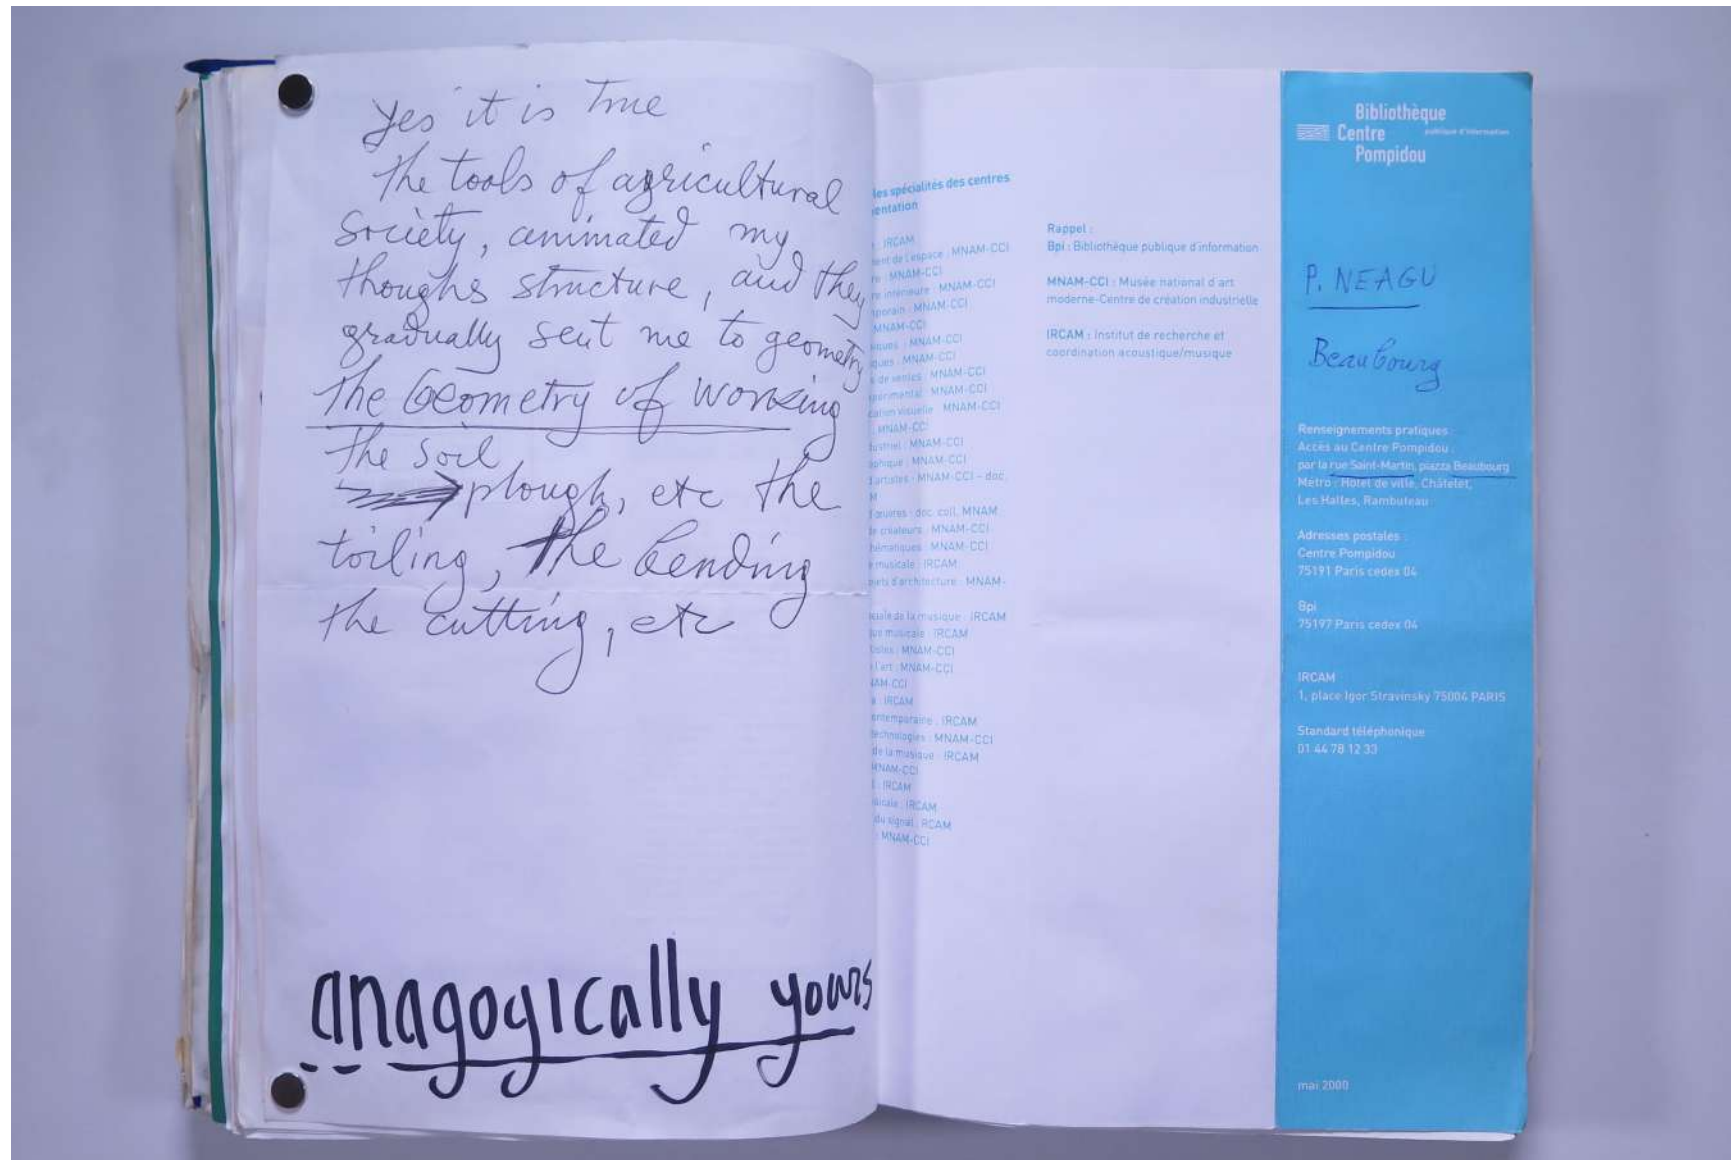 Yes it is True
the tools of agricultural
society, animated my
thoughs structure, and they
gradually sent me to geometry
the Geometry of working
the soil
plough, etc the
toiling, the bending
the cutting, etc
anagogically yours
les spécialités des centres
: IRCAM
de l'espace : MNAM-CCI
: MNAM-CCI
intérieure : MNAM-CCI
: MNAM-CCI
MNAM-CCI
: MNAM-CCI
: MNAM-CCI
de ventes : MNAM-CCI
: MNAM-CCI
visuelle : MNAM-CCI
: MNAM-CCI
: MNAM-CCI
: MNAM-CCI
d'artistes : MNAM-CCI – doc.
d'œuvres : doc. coll. MNAM
de créateurs : MNAM-CCI
: MNAM-CCI
musicale : IRCAM
d'architecture : MNAM-
de la musique : IRCAM
musicale : IRCAM
: MNAM-CCI
l'art : MNAM-CCI
: IRCAM
: IRCAM
technologies : MNAM-CCI
de la musique : IRCAM
MNAM-CCI
: IRCAM
: IRCAM
du signal : RCAM
: MNAM-CCI
Rappel :
Bpi : Bibliothèque publique d'information
MNAM-CCI : Musée national d'art
moderne-Centre de création industrielle
IRCAM : Institut de recherche et
coordination acoustique/musique
Bibliothèque
publique d'information
Centre
Pompidou
P. NEAGU
Beaubourg
Renseignements pratiques :
Accès au Centre Pompidou :
par la rue Saint-Martin, piazza Beaubourg
Métro : Hôtel de ville, Châtelet,
Les Halles, Rambuteau
Adresses postales :
Centre Pompidou
75191 Paris cedex 04
Bpi
75197 Paris cedex 04
IRCAM
1, place Igor Stravinsky 75004 PARIS
Standard téléphonique
01 44 78 12 33
mai 2000